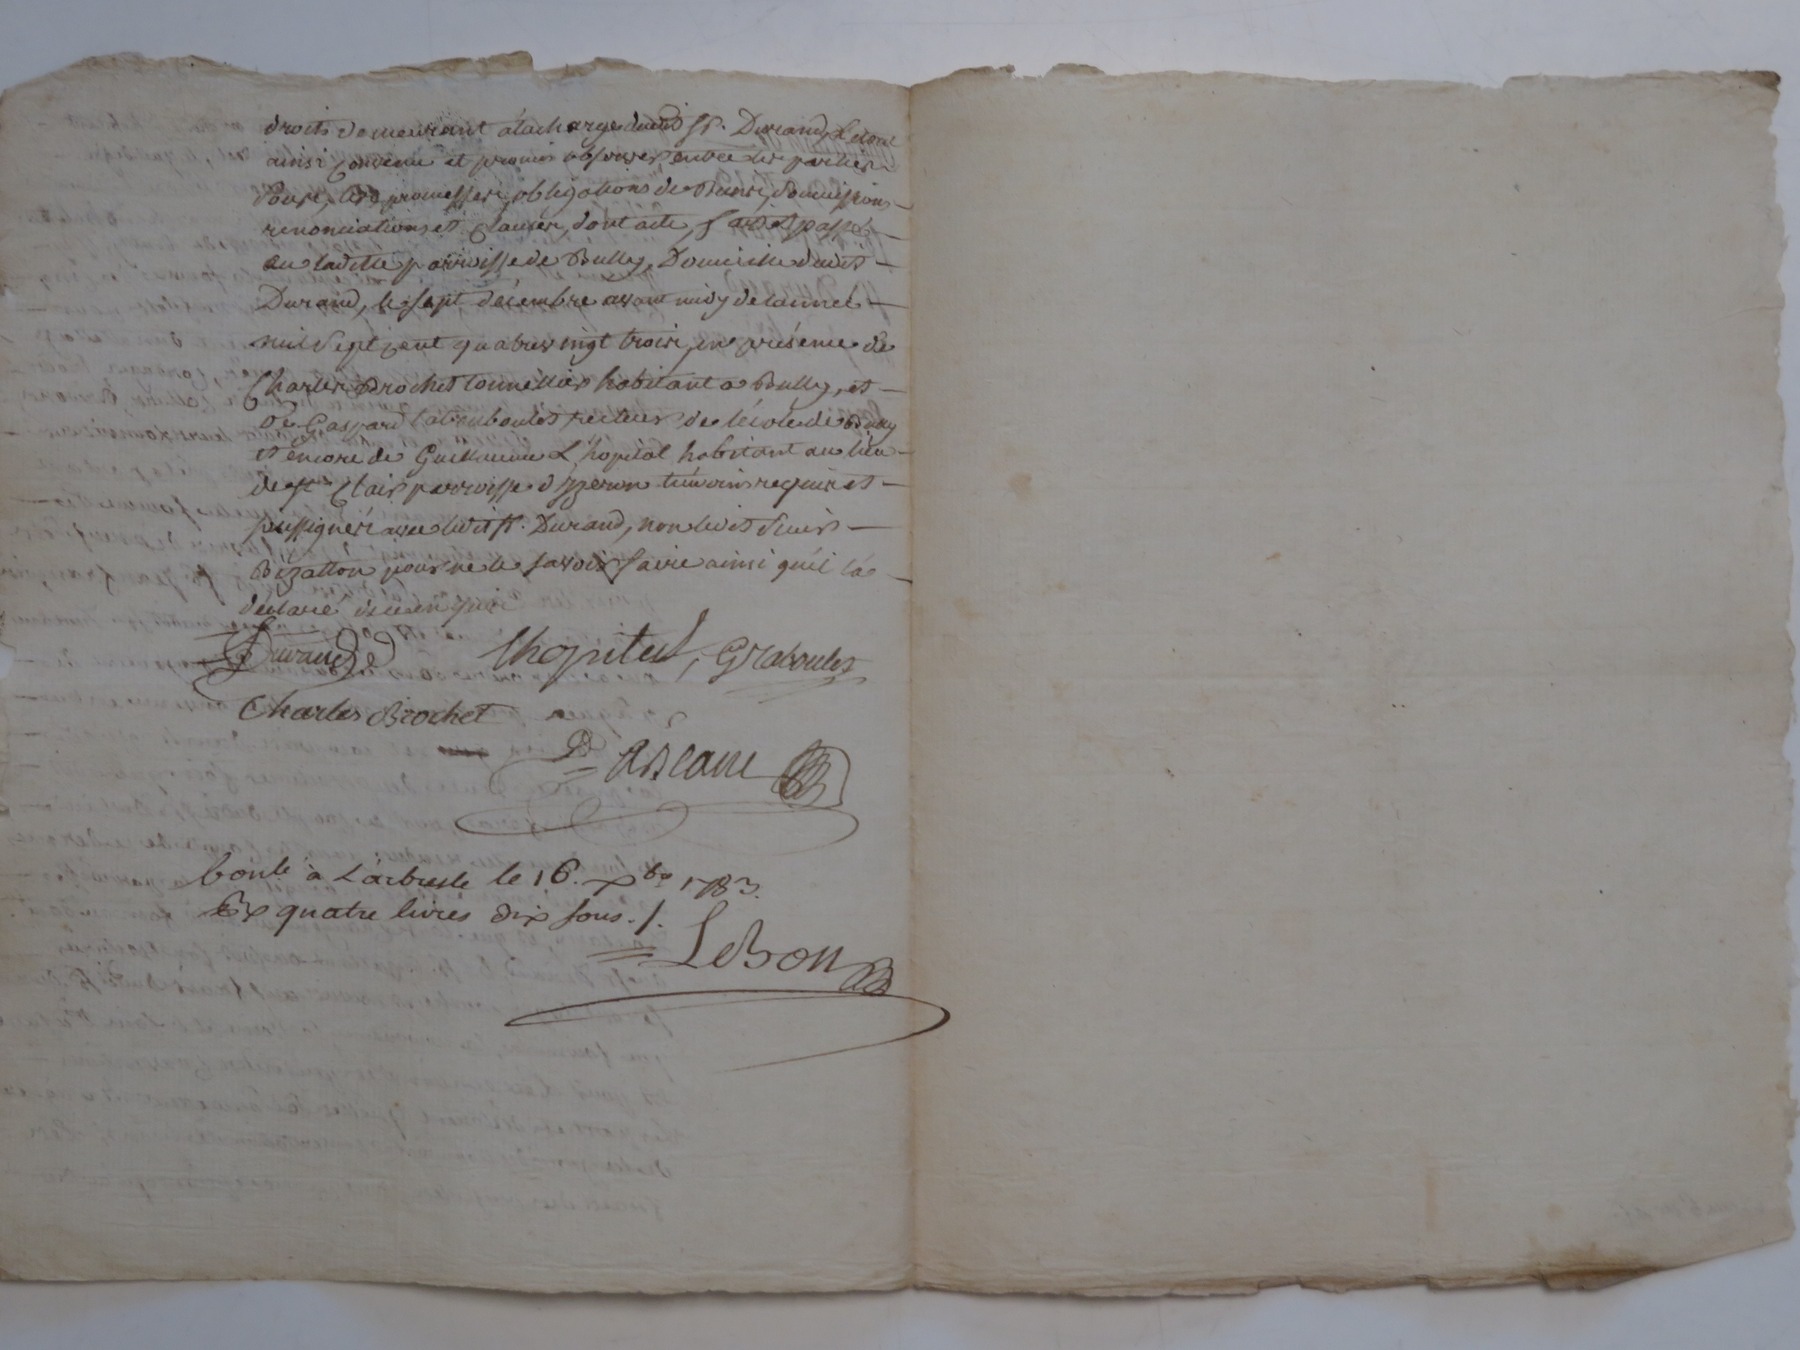 droits demeurant à la charge dudit Sr. Durand, Letout
ainsi convenu et promis observer entre les parties
Pour, par promesses, obligations de Biens, Soumissions
renonciations et clauses, dont acte, fait et passé
au laditte parroisse de Bully, Domicille dudit
Durand, le sept décembre avant midy de l'année
mil sept cent quatre vingt trois, en présence de
Charles Brochet tonnellier habitant a Bully, et
De Gaspard Raboulet recteur de l'école de Bully
et encore de Guillaume L'hopital habitant au lieu
de St Clair parroisse d'Izeron témoins requis et
soussignés avec ledit Sr. Durand, non ledit
Bizallon pour ne le savoir faire ainsi qu'il l'a
déclaré de ce enquis
Durand
Lhopital, G Raboulet
Charles Brochet
contlé à L'arbresle le 16. xbre 1783.
Rx quatre livres dix sous ./.
LeBon